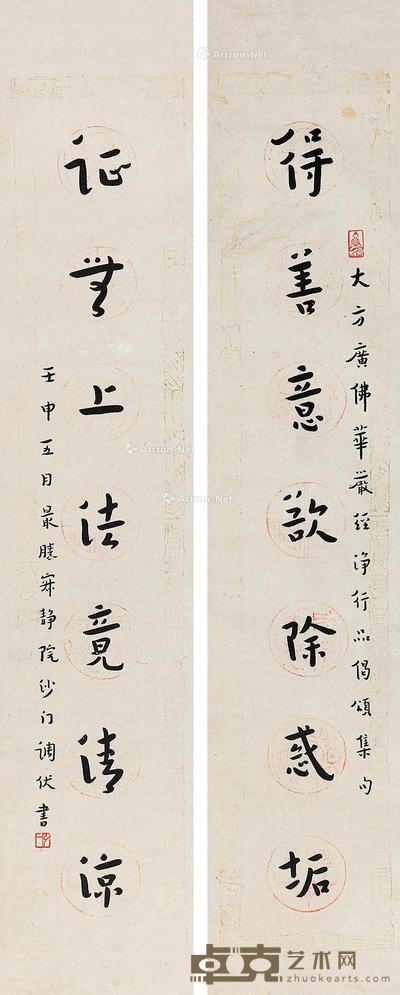 得善意欲除惑垢
大方廣佛華嚴經淨行品偈頌集句
証無上法竟清涼
壬申五月最勝寂静院沙门调伏書
Artron.Net
卓克艺术网
www.zhuokearts.com